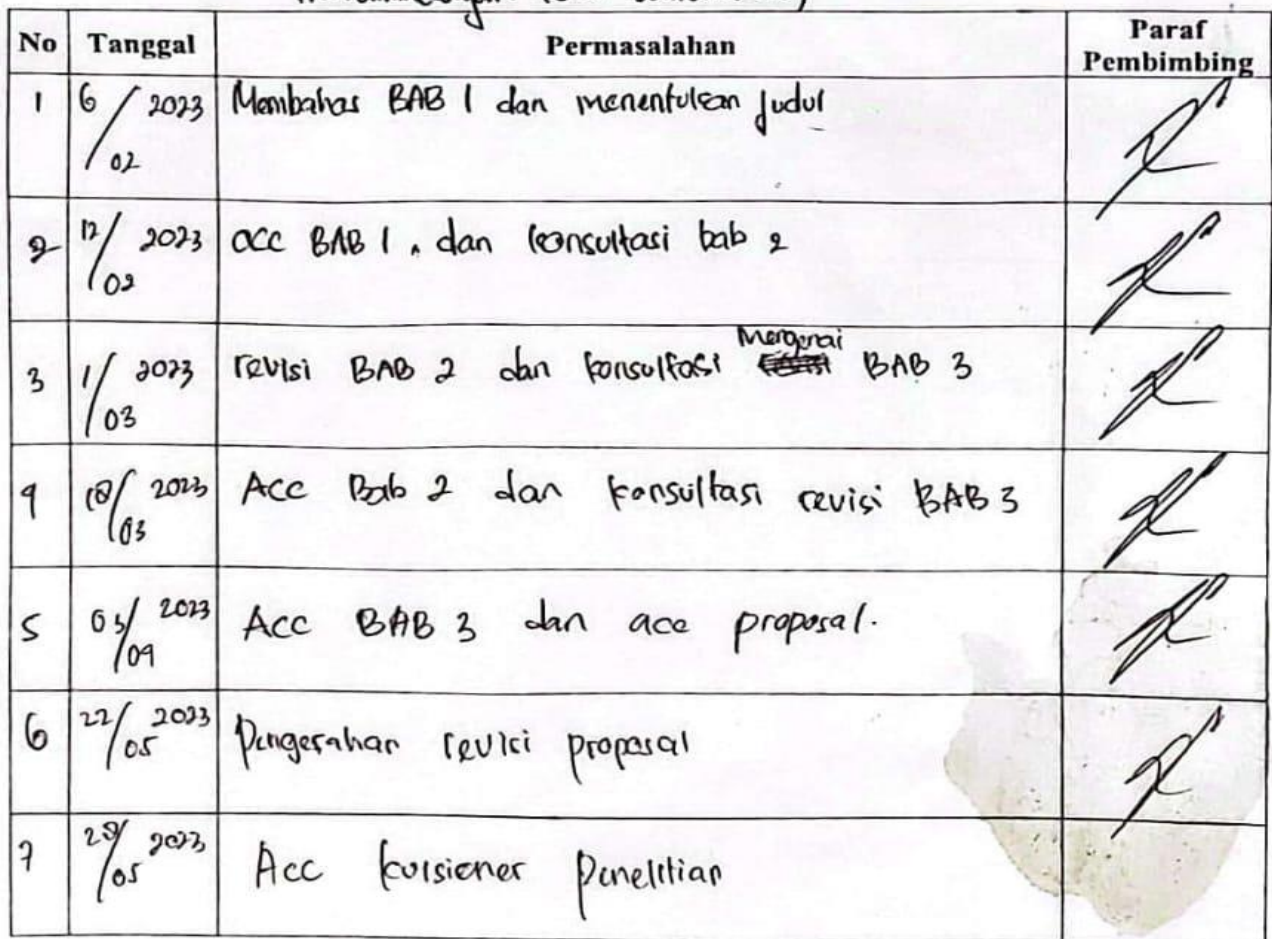 No Tanggal Permasalahan Paraf Pembimbing
1 6/02 2023 Membahas BAB 1 dan menentukan judul
2 12/02 2023 acc BAB 1, dan konsultasi bab 2
3 1/03 2023 revisi BAB 2 dan konsultasi Mengenai BAB 3
4 18/03 2023 Acc Bab 2 dan konsultasi revisi BAB 3
5 03/04 2023 Acc BAB 3 dan acc proposal.
6 22/05 2023 Pengesahan revisi proposal
7 /05 2023 Acc kuisioner Penelitian